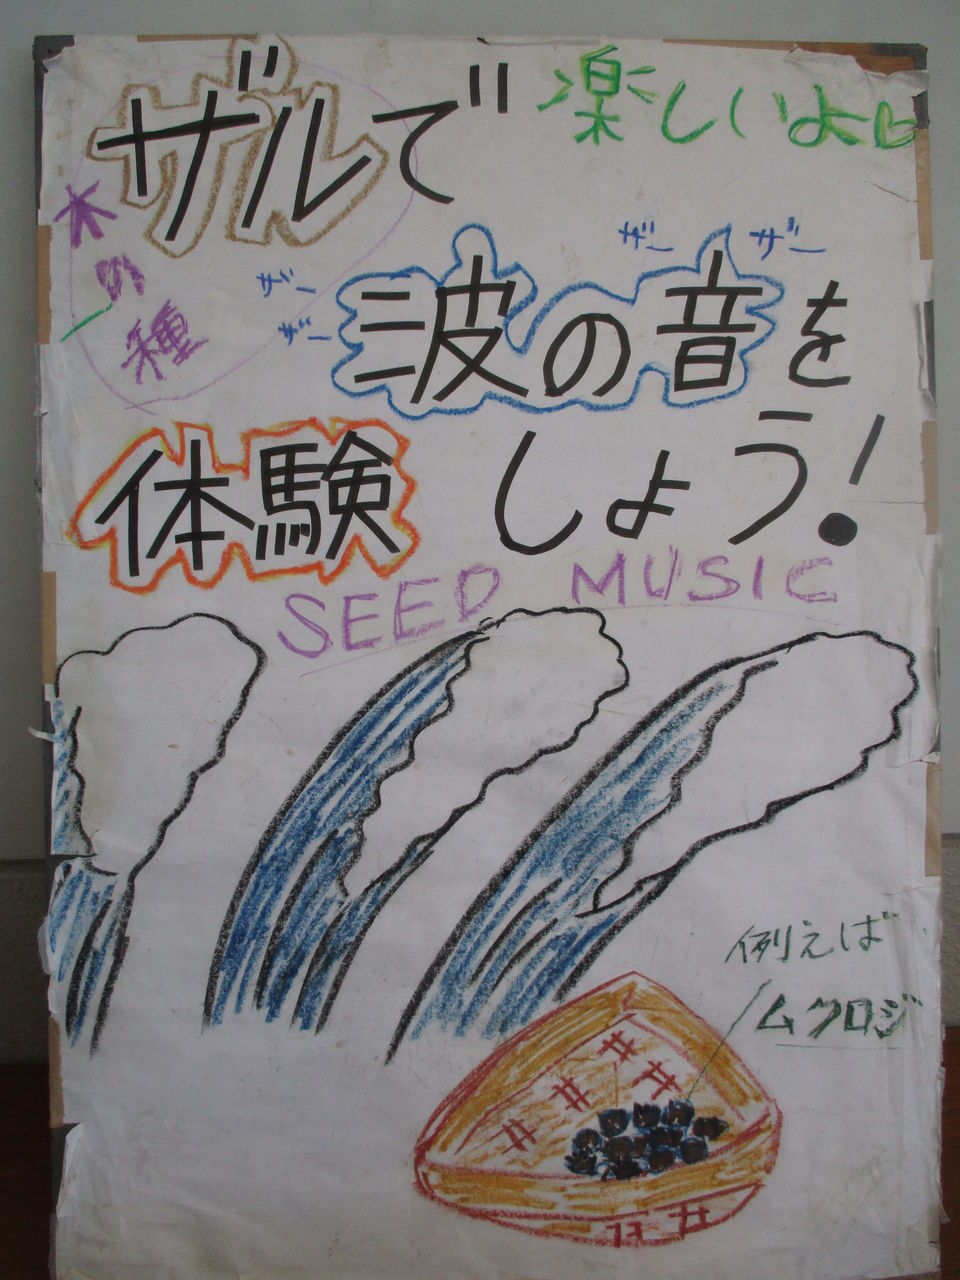 ザルで
楽しいよ♡
木
の
種
ザー ザー
ザー
ザー
波の音を
体験 しょう!
SEED MUSIC
例えば
ムクロジ